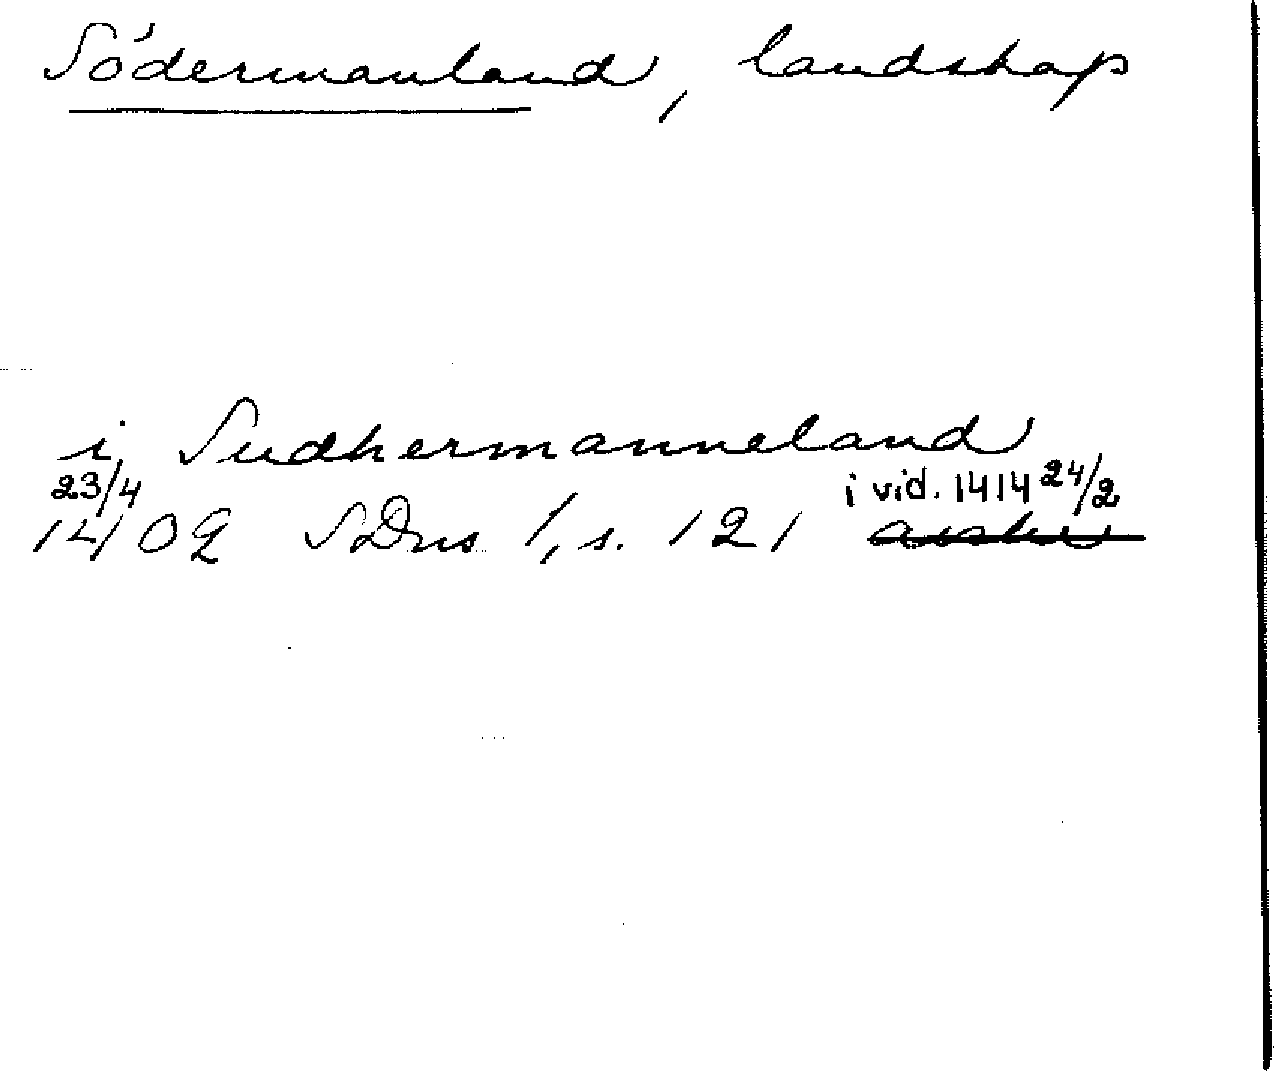 Södermanland, landskap
i Sudhermanneland
23/4 i vid. 1414 24/2
1402 SDns 1, s. 121 avskr